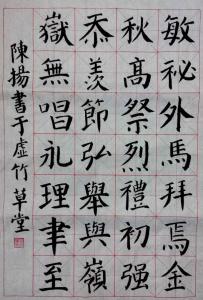 敏祕外馬拜焉金
秋高祭烈禮初强
忝羨節弘舉與嶺
嶽無唱礼理聿至
陳揚書于虛竹草堂